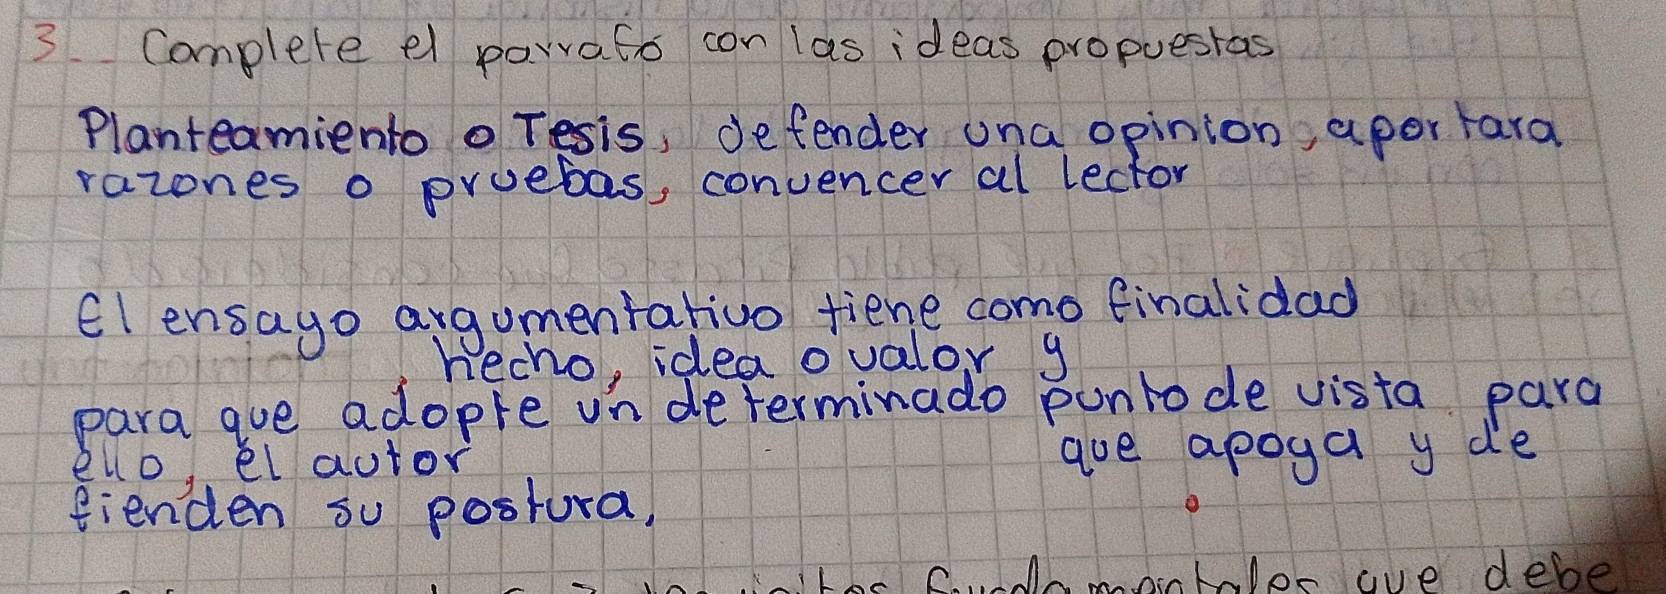 3.. Complete el parrafo con las ideas propuestas
Planteamiento o Tesis, defender una opinion, aportara
razones o pruebas, convencer al lector
El ensayo argumentativo tiene como finalidad
, hecho, idea o valor y
para que adopte un determinado punto de vista. para
ello, el autor que apoya y de
fienden su postura,
fundamentales que debe